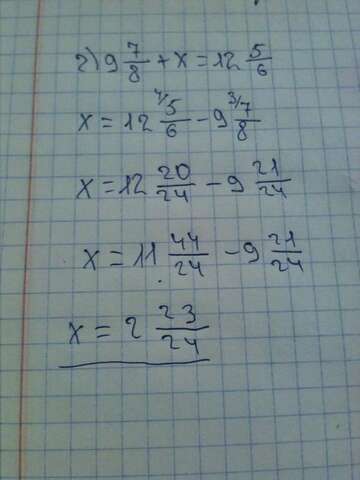 2) 9 7/8 + x = 12 5/6
x = 12 4/ 5/6 - 9 3/ 7/8
x = 12 20/24 - 9 21/24
x = 11 44/24 - 9 21/24
x = 2 23/24